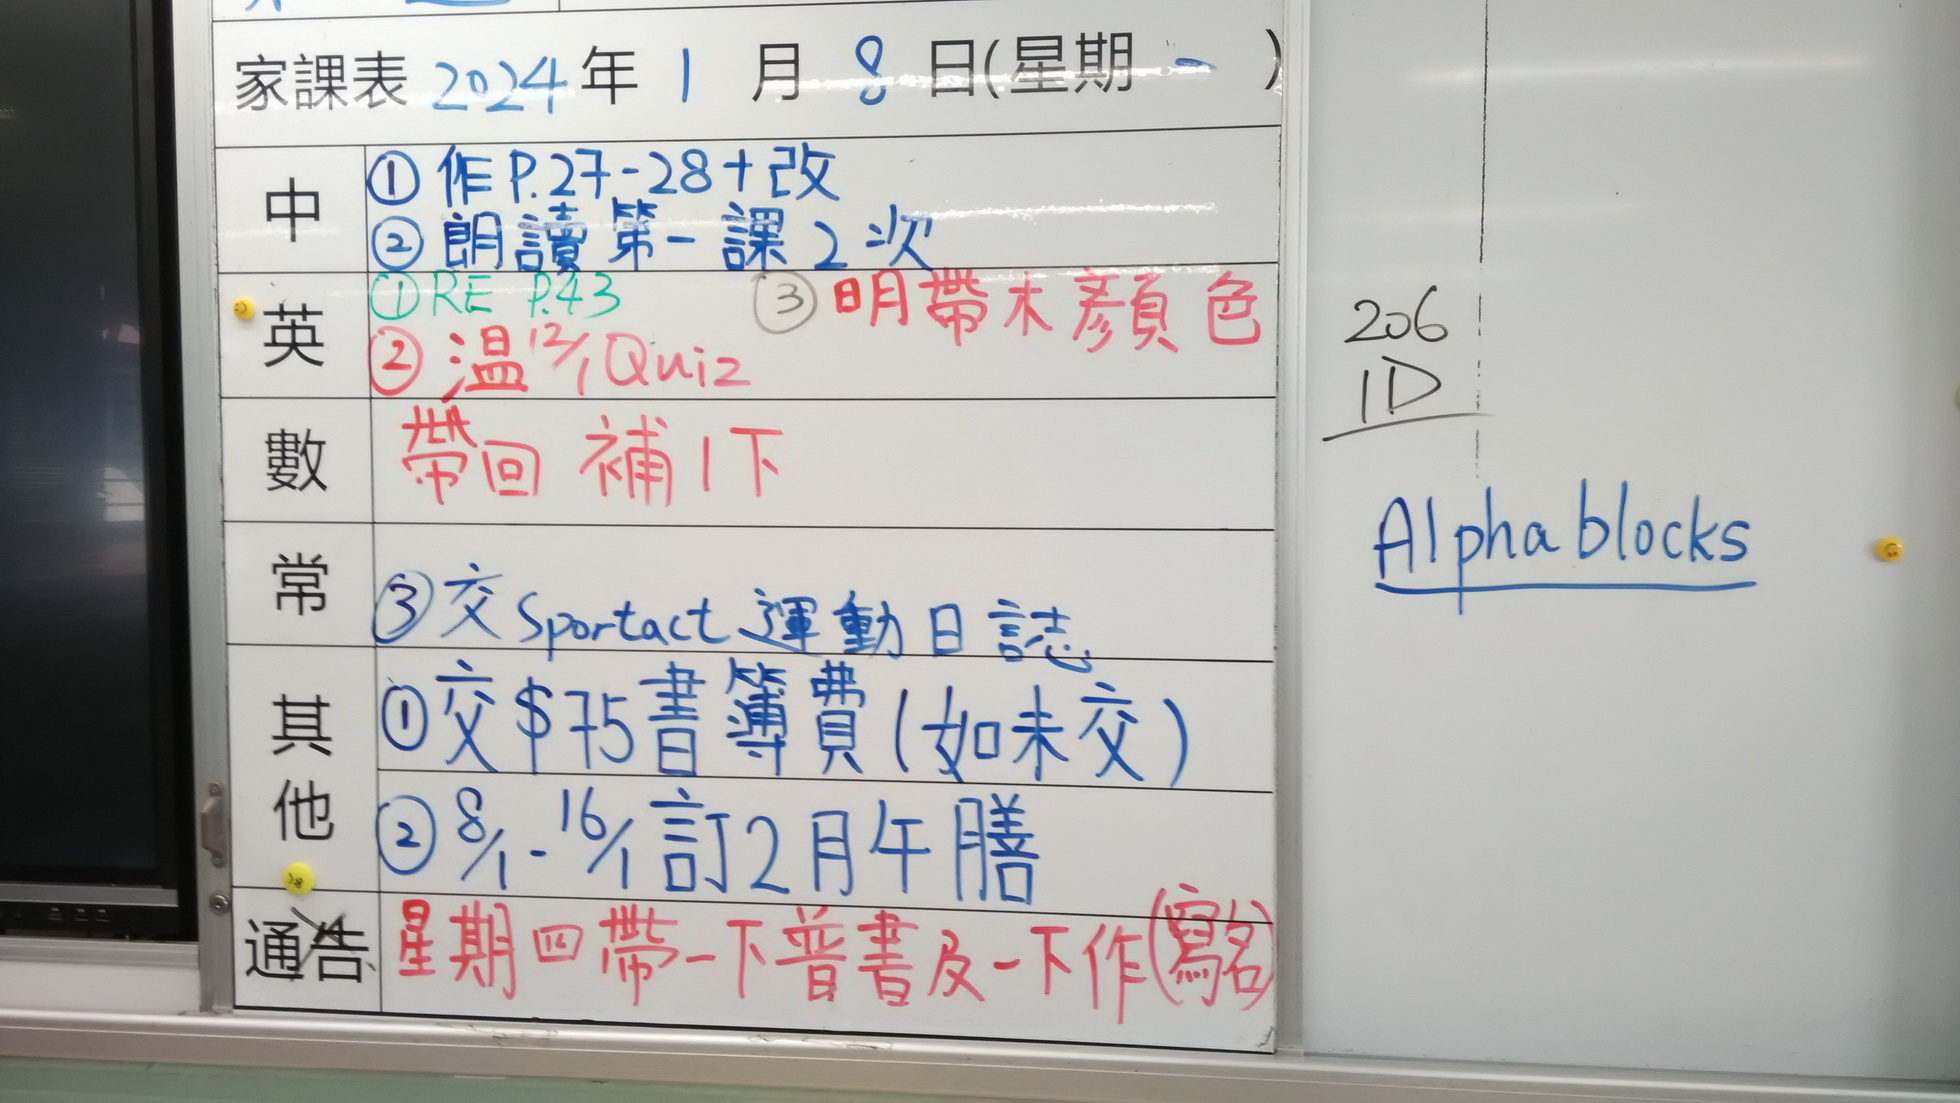 家課表 2024年 1 月 8 日(星期一)
中
① 作P.27-28+改
② 朗讀第一課2次
英
① RE P.43
② 溫12/1 Quiz
③ 明帶木顏色
數
帶回 補1下
常
③ 交Sportact 運動日誌
其他
① 交$75書簿費(如未交)
② 8/1-16/1訂2月午膳
通告
星期四帶一下普書及一下作(寫名)
206
1D
Alphablocks